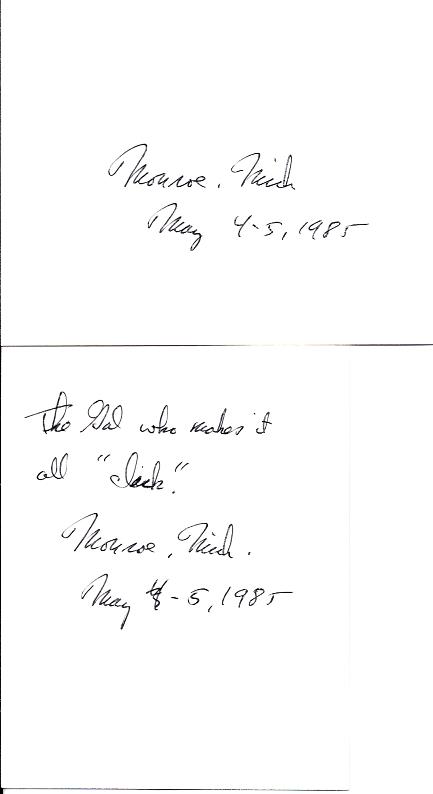 Monroe, Mich
May 4-5, 1985
The Gal who makes it
all "click".
Monroe, Mich.
May 4-5, 1985